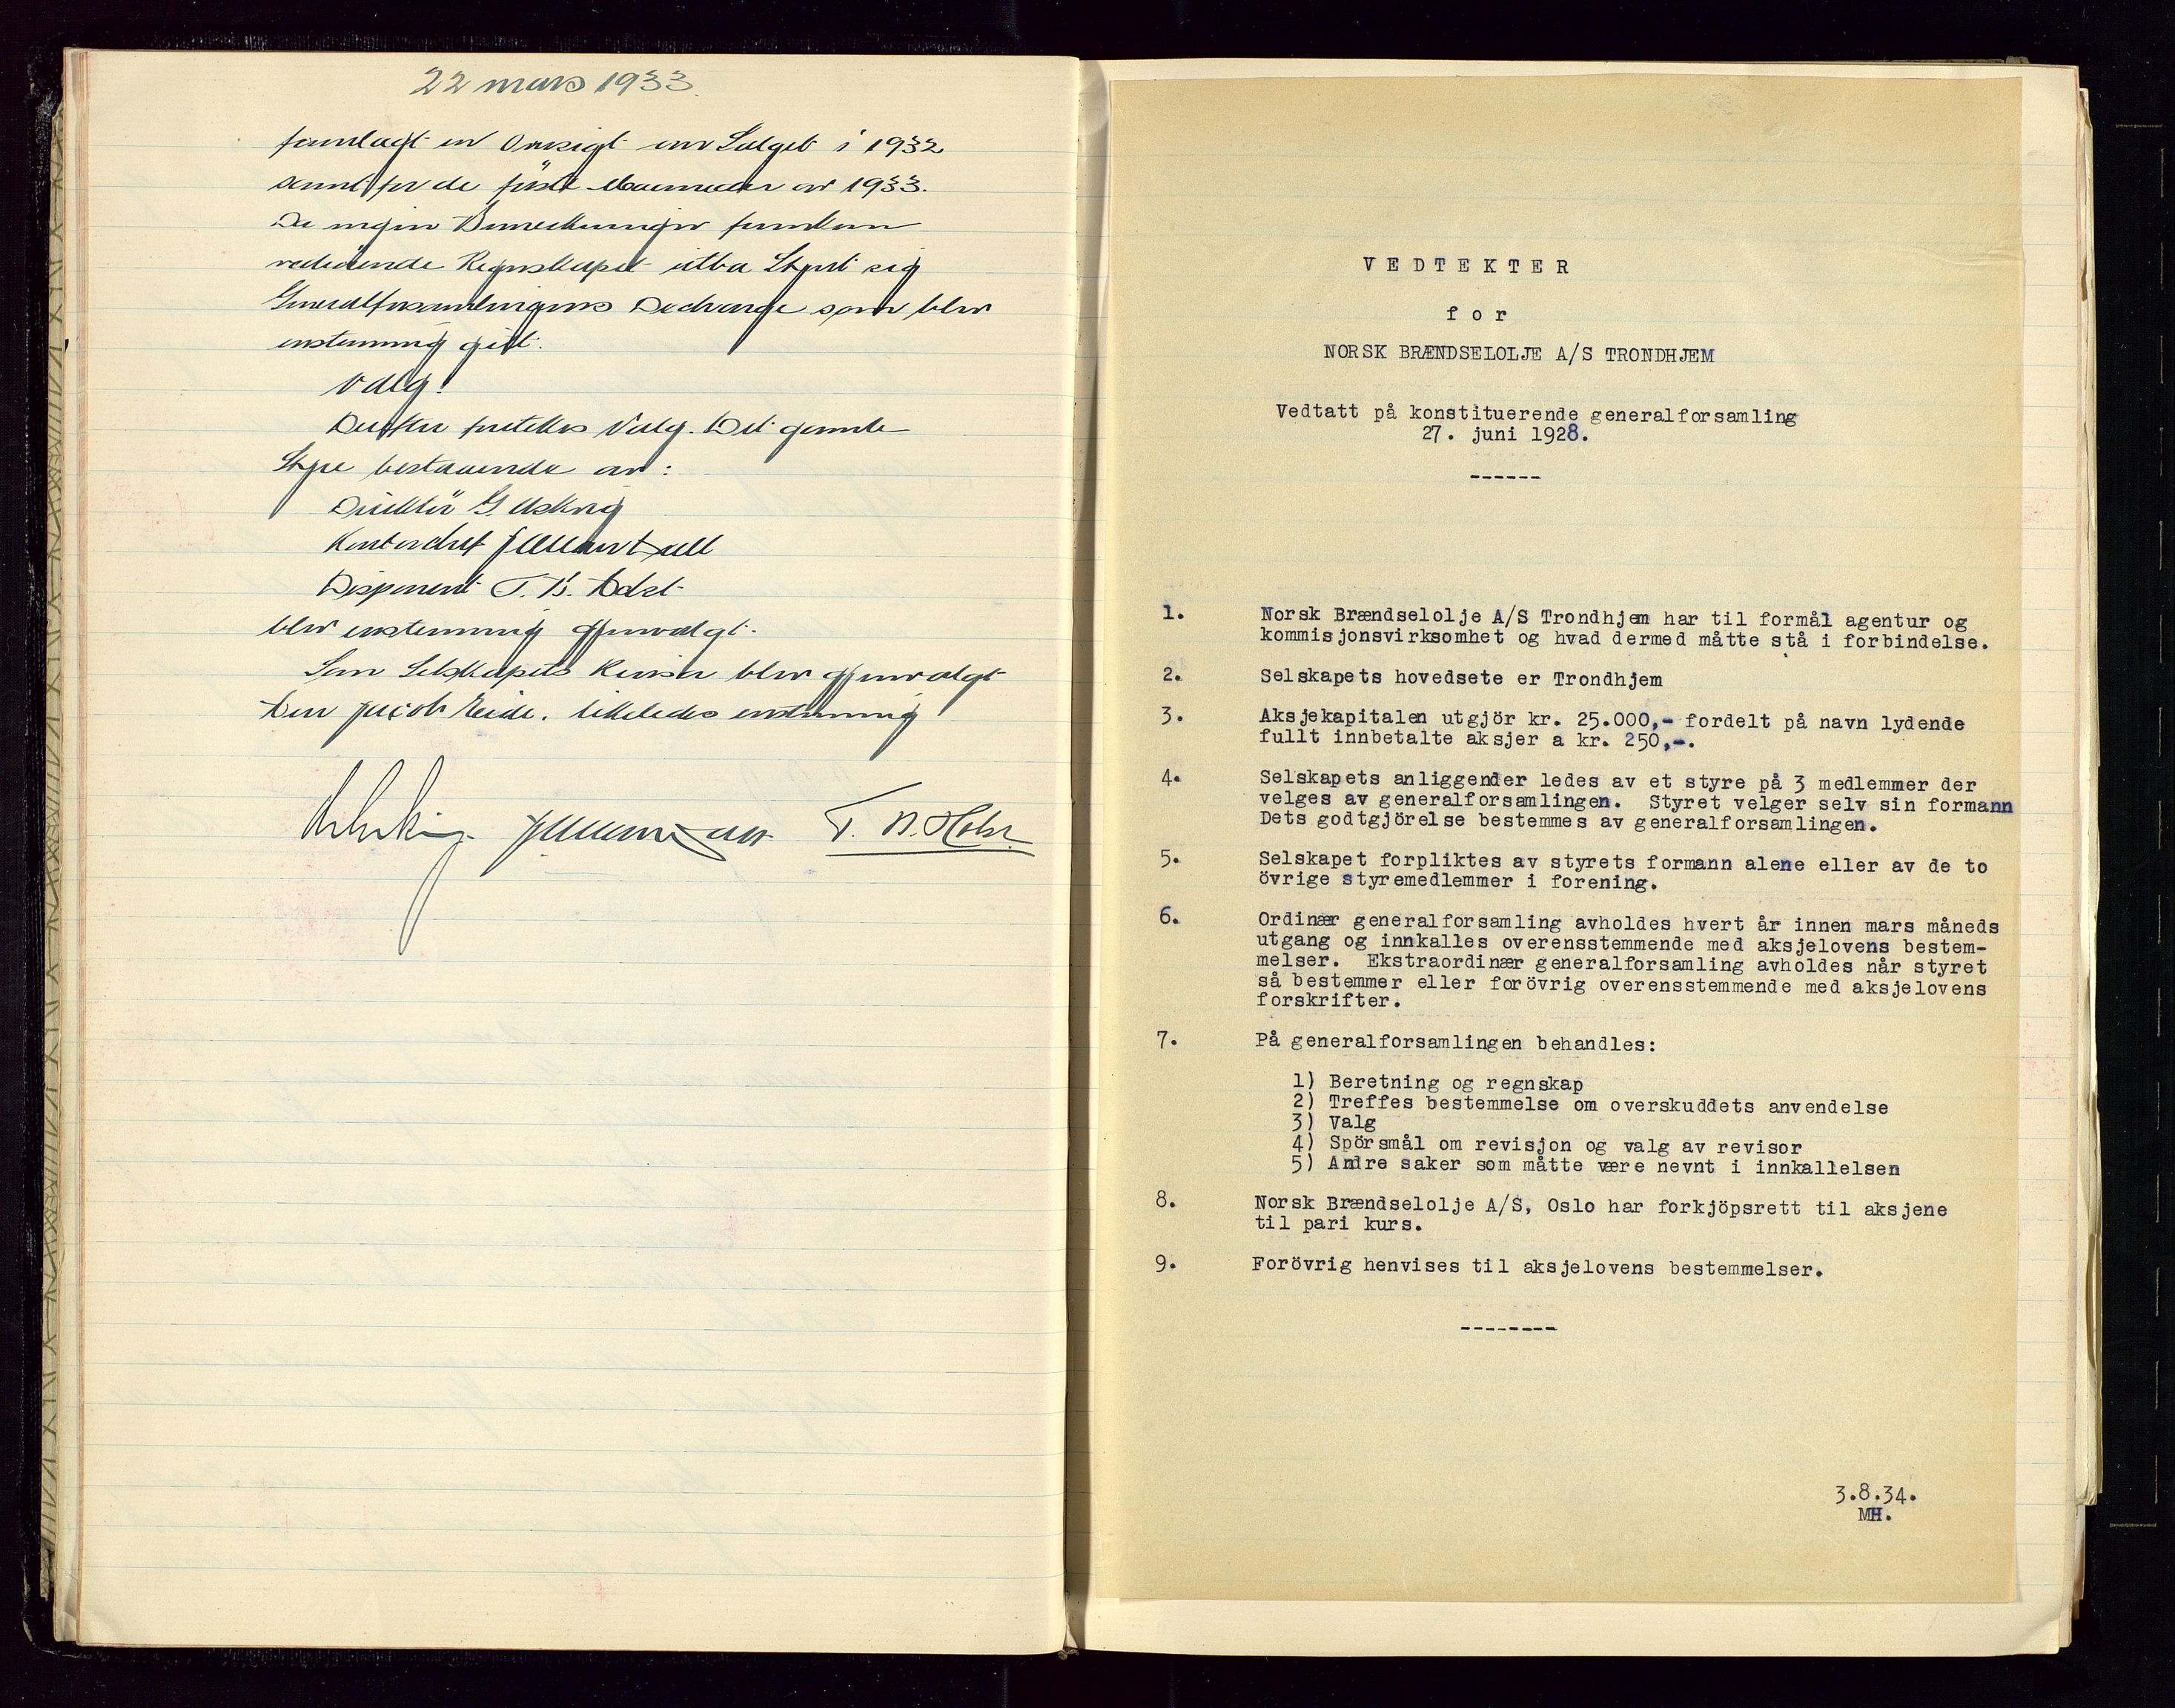 22 mars 1933.
fremlagt en Oversigt over Salget i 1932
samt for de første Maaneder av 1933.
Da ingen Bemerkninger fremkom
vedrørende Regnskapet utba Styret sig
Generalforsamlingens Decharge som blev
enstemmig gitt.
Valg.
Derefter foretokes Valg. Det gamle
Styre bestaaende av:
Direktör G.
Kontorchef
Disponent T. B. Holst
blev enstemmig gjenvalgt.
Som Selskapets Revisor blev gjenvalgt
Herr Jacob Eeide. likeledes enstemmig
T. B. Holst
VEDTEKTER
for
NORSK BRÆNDSELOLJE A/S TRONDHJEM
Vedtatt på konstituerende generalforsamling
27. juni 1928.
------
1. Norsk Brændselolje A/S Trondhjem har til formål agentur og
kommisjonsvirksomhet og hvad dermed måtte stå i forbindelse.
2. Selskapets hovedsete er Trondhjem
3. Aksjekapitalen utgjör kr. 25.000,- fordelt på navn lydende
fullt innbetalte aksjer a kr. 250,-.
4. Selskapets anliggender ledes av et styre på 3 medlemmer der
velges av generalforsamlingen. Styret velger selv sin formann
Dets godtgjörelse bestemmes av generalforsamlingen.
5. Selskapet forpliktes av styrets formann alene eller av de to
övrige styremedlemmer i forening.
6. Ordinær generalforsamling avholdes hvert år innen mars måneds
utgang og innkalles overensstemmende med aksjelovens bestem-
melser. Ekstraordinær generalforsamling avholdes når styret
så bestemmer eller forövrig overensstemmende med aksjelovens
forskrifter.
7. På generalforsamlingen behandles:
1) Beretning og regnskap
2) Treffes bestemmelse om overskuddets anvendelse
3) Valg
4) Spörsmål om revisjon og valg av revisor
5) Andre saker som måtte være nevnt i innkallelsen
8. Norsk Brændselolje A/S, Oslo har forkjöpsrett til aksjene
til pari kurs.
9. Forövrig henvises til aksjelovens bestemmelser.
--------
3.8.34.
MH.